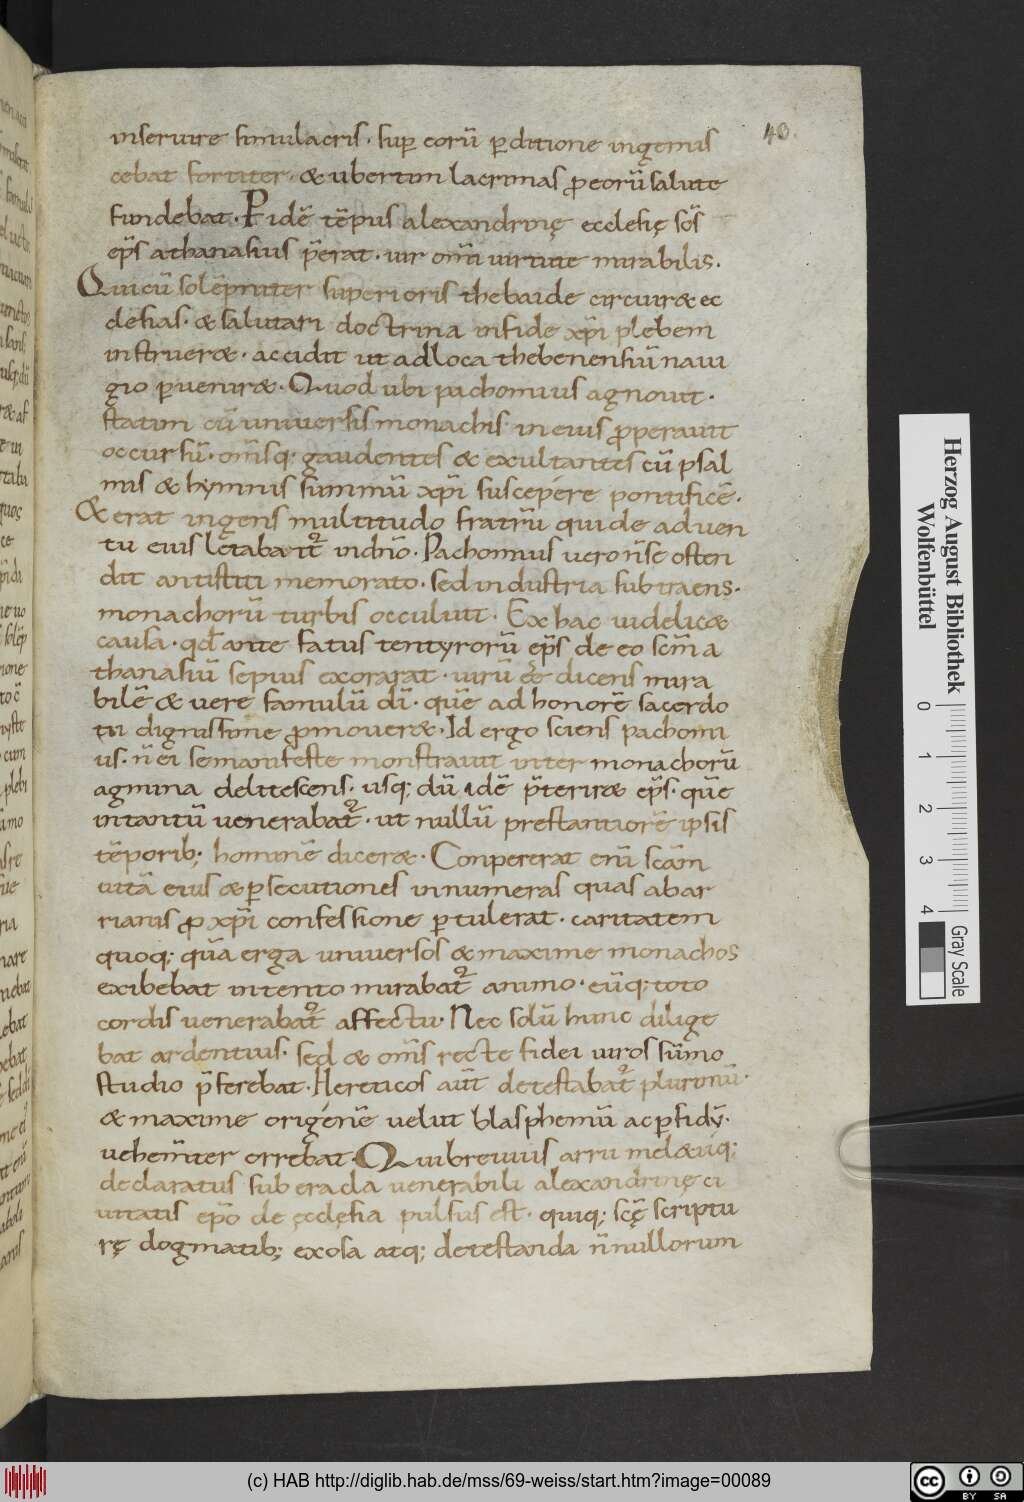 40.
inseruire simulacris · sup eorū pditione ingemis
cebat fortiter · & ubertim lacrimas p eorū salute
fundebat · P idē tēpus alexandrinę ecclesię sc̄s
ep̄s athanasius p̄erat · uir om̄i uirtute mirabilis ·
Qui cū solēpniter superioris thebaide circuir& ec
clesias · & salutari doctrina in fide xp̄i plebem
instruer& · accidit ut ad loca thebenensiū naui
gio puenir& · Quod ubi pachomius agnouit ·
statim cū uniuersis monachis in eius pperauit
occursū · om̄sq; gaudentes & exultantes cū psal
mis & hymnis summū xp̄i suscepére pontificē ·
& erat ingens multitudo fratrū qui de aduen
tu eius lętabat̄ in dn̄o · Pachomius uero n̄ se osten
dit antistiti memorato · sed industria subtraens ·
monachorū turbis occuluit · Ex hac uidelic&
causa · qd̄ ante fatus tentyrorū ep̄s de eo sc̄m a
thanasiū sepius exorarat · uirū eē dicens mira
bilē & uere famulū dī · quē ad honorē sacerdo
tii dignissime pmouer& · Id ergo sciens pachomi
us · n̄ ei se manifeste monstrauit inter monachorū
agmina delitescens · usq; dū idē p̄terir& ep̄s · quē
intantū uenerabat̄ · ut nullū prestantiorē ipsis
tēporib; hominē dicer& · Conpererat enī sc̄am
uitā eius & psecutiones innumeras quas ab ar
rianis p xp̄i confessione ptulerat · caritatem
quoq; quā erga uniuersos & maxime monachos
exibebat intento mirabat̄ animo · eūq; toto
cordis uenerabat̄ affectu · Nec solū hunc dilige
bat ardentius · sed & om̄s recte fidei uiros sūmo
studio p̄ferebat · Hereticos aūt detestabat̄ plurimū ·
& maxime origénē uelut blasphemū ac pfidū ·
uehem̄ter orrebat · Qui breuius arru mel&iiq;
declaratus sub eracla uenerabili alexandrinę ci
uitatis ep̄o de ęcclęsia pulsus est · quiq; sc̄ę scriptu
rę dogmatib; exosa atq; detestanda n̄nullorum
Herzog August Bibliothek
Wolfenbüttel
0 1 2 3 4
Gray Scale
(c) HAB http://diglib.hab.de/mss/69-weiss/start.htm?image=00089
cc BY SA